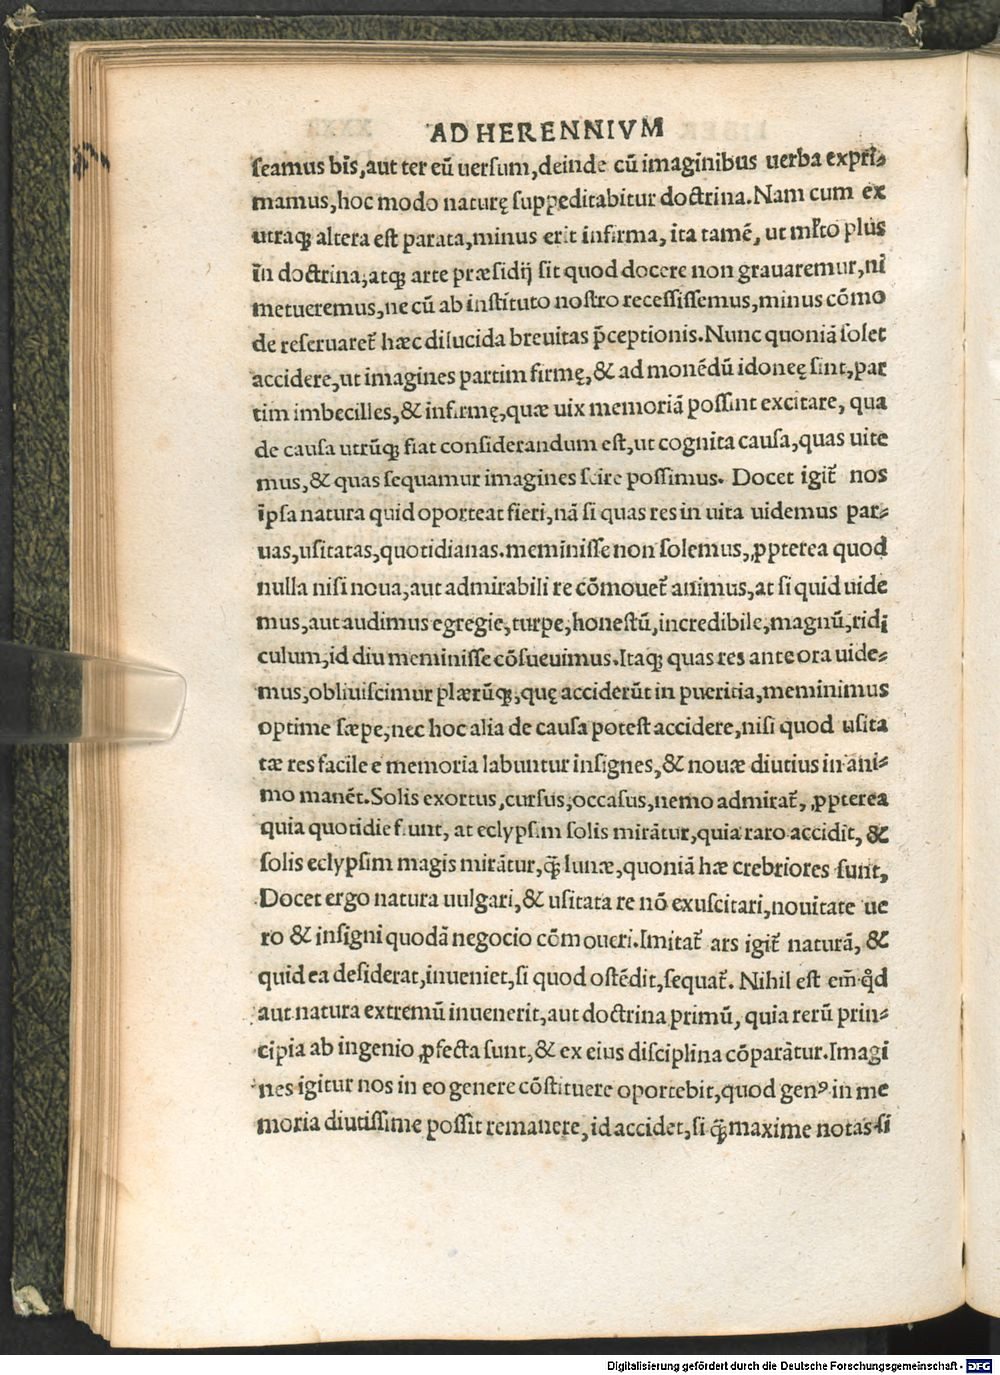 AD HERENNIVM
seamus bis, aut ter eũ uersum, deinde cũ imaginibus uerba expri⸗
mamus, hoc modo naturę suppeditabitur doctrina. Nam cum ex
utraqꝫ altera est parata, minus erit infirma, ita tamẽ, ut ml̃to plus
in doctrina, atqꝫ arte præsidij sit quod docere non grauaremur, ni
metueremus, ne cũ ab instituto nostro recessissemus, minus cõmo
de reseruaret᷑ hæc dilucida breuitas p̃ceptionis. Nunc quoniã solet
accidere, ut imagines partim firmę, & ad monẽdũ idoneę sint, par
tim imbecilles, & infirmę, quæ uix memoriã possint excitare, qua
de causa utrũqꝫ fiat considerandum est, ut cognita causa, quas uite
mus, & quas sequamur imagines scire possimus. Docet igit᷑ nos
ipsa natura quid oporteat fieri, nã si quas res in uita uidemus par⸗
uas, usitatas, quotidianas. meminisse non solemus, ꝓpterea quod
nulla nisi noua, aut admirabili re cõmouet᷑ animus, at si quid uide
mus, aut audimus egregie, turpe, honestũ, incredibile, magnũ, ridi
culum, id diu meminisse cõsueuimus. Itaqꝫ quas res ante ora uide⸗
mus, obliuiscimur plærũqꝫ, quę acciderũt in pueritia, meminimus
optime sæpe, nec hoc alia de causa potest accidere, nisi quod usita
tæ res facile e memoria labuntur insignes, & nouæ diutius in ani⸗
mo manẽt. Solis exortus, cursus, occasus, nemo admirat᷑, ꝓpterea
quia quotidie fiunt, at eclypsim solis mirãtur, quia raro accidit, &
solis eclypsim magis mirãtur, q̃ꝫ lunæ, quoniã hæ crebriores sunt,
Docet ergo natura uulgari, & usitata re nõ exuscitari, nouitate ue
ro & insigni quodã negocio cõmoueri. Imitat᷑ ars igit᷑ naturã, &
quid ea desiderat, inueniet, si quod ostẽdit, sequat᷑. Nihil est em̃ qͥd
aut natura extremũ inuenerit, aut doctrina primũ, quia rerũ prin⸗
cipia ab ingenio ꝓfecta sunt, & ex eius disciplina cõparãtur. Imagi
nes igitur nos in eo genere cõstituere oportebit, quod genꝰ in me
moria diutissime possit remanere, id accidet, si q̃ꝫ maxime notas si
Digitalisierung gefördert durch die Deutsche Forschungsgemeinschaft - DFG